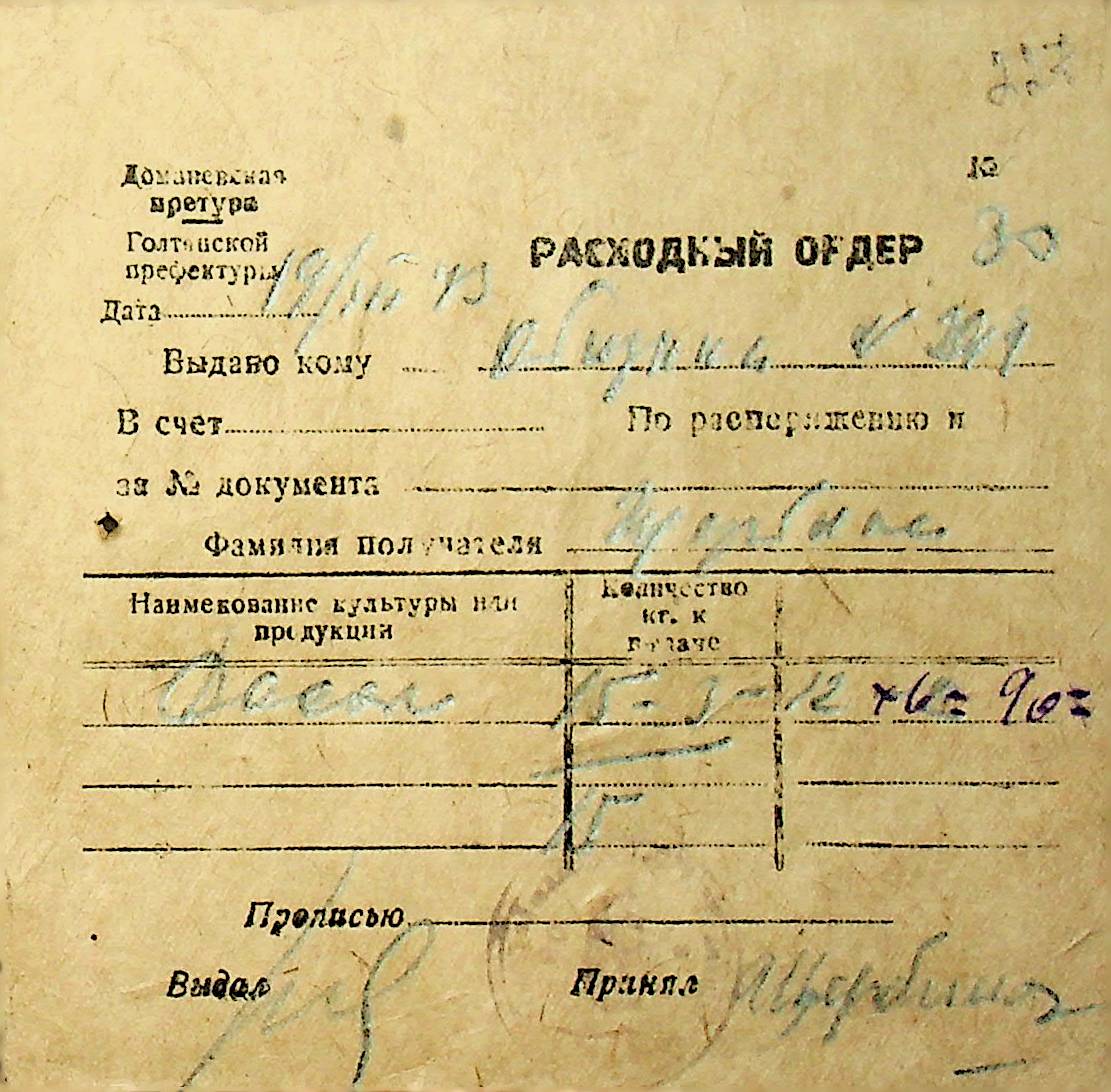 227
Доманевская
претура
№
Голтянской
префектуры
РАСХОДНЫЙ ОРДЕР 30
Дата 19/VIII 43
Выдано кому Общине №
В счет По распоряжению и
за № документа
Фамилия получателя Щербина
Наименование культуры или
продукции
Количество
кг. к
выдаче
Фасоль 15 - 12 +6= 90=
15
Прописью
Выдал
Принял Щербина